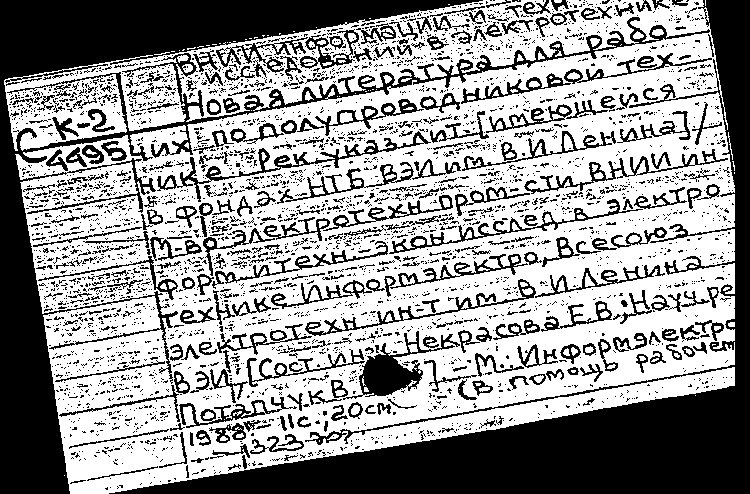 ВНИИ информации и техн
исследований в электротехнике
Новая литература для рабо-
С К-2
4495
чих по полупроводниковой тех-
нике. Рек. указ. лит. [имеющейся
в фондах НТБ ВЭИ им. В.И.Ленина]/
М-во электротехн пром-сти, ВНИИ ин
форм. и техн.-экон исслед. в электро
технике Информэлектро, Всесоюз
электротехн ин-т им. В.И Ленина
ВЭИ, [Сост. инж. Некрасова Е.В.; Науч. ре
Потапчук В. ]. - М.: Информэлектро
1988 - 11с.; 20см. (В помощь рабочем